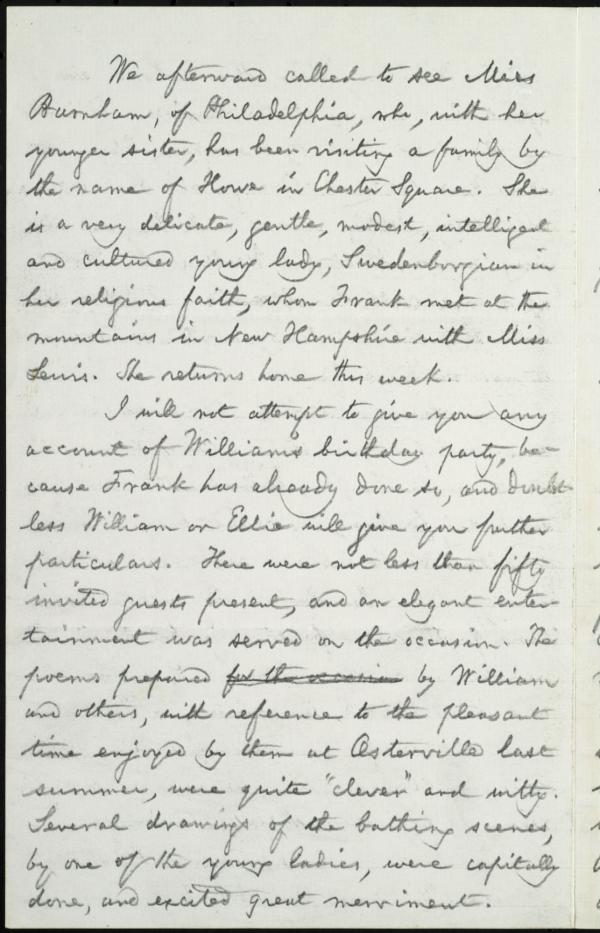 We afterward called to see Miss
Burnham, of Philadelphia, who, with her
younger sister, has been visiting a family by
the name of Howe in Chester Square. She
is a very delicate, gentle, modest, intelligent
and cultured young lady, Swedenborgian in
her religious faith, whom Frank met at the
mountains in New Hampshire with Miss
Lewis. She returns home this week.
I will not attempt to give you any
account of William's birthday party, be-
cause Frank has already done so, and doubt-
less William or Ellie will give you further
particulars. There were not less than fifty
invited guests present, and an elegant enter-
tainment was served on the occasion. The
poems prepared for the occasion by William
and others, with reference to the pleasant
time enjoyed by them at Osterville last
summer, were quite "clever" and witty.
Several drawings of the bathing scenes,
by one of the young ladies, were capitally
done, and excited great merriment.